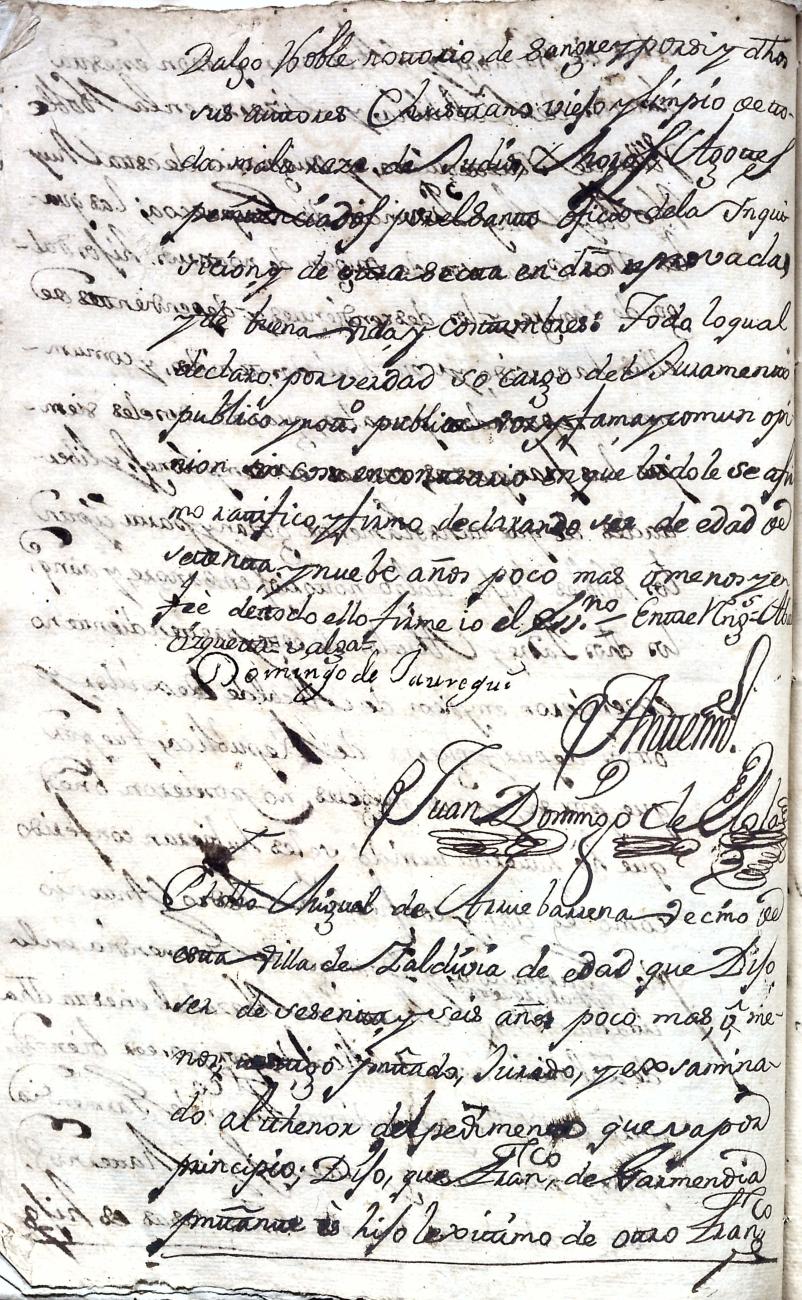 Dalgo Noble notorio de sangre y por si y dhos
sus autores Christiano viejo y limpio de to-
da mala raza de Judios, Moros, Agotes
penitenciados por el Santo oficio de la Inqui
sicion, y de otra secta en dro reprovada,
y de buena vida, y costumbres: Todo lo qual
declaro por verdad so cargo del Juramento
publico y noto. publica voz, y fama y comun opi
nion sin cosa en contrario en que leidole se afir
mo ratifico, y firmo declarando ser de edad de
setenta y nuebe años poco mas ô menos, y en
feè de todo ello firme io el Ssno.
Ozqueta = valga =
Domingo de Jauregui
Antemi.
Juan Domingo de
Miguel de Arriebarrena vecino de
esta villa de Zaldivia de edad que Dijo
ser de sesenta y seis años poco mas, ô me-
nos, testigo pntado, Jurado, y exsamina-
do al thenor del pedimento que va por
principio; Dijo, que Franco, de Garmendia
pntante es hijo lexitimo de otro Franco